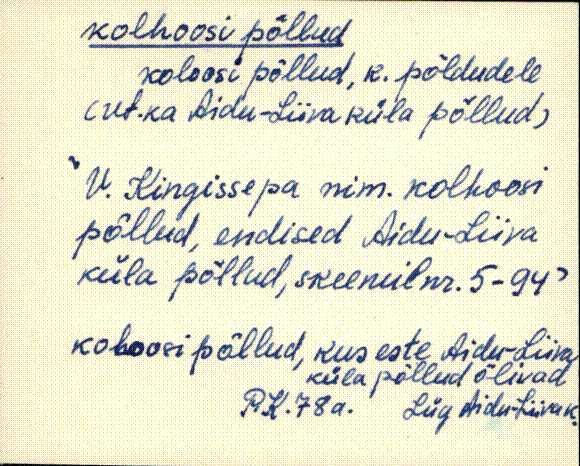 kolhoosi põllud
koloosi põllud, k. põldudele
(vt. ka Aidu-Liiva küla põllud)
V. Kingissepa nim. kolhoosi
põllud, endised Aidu-Liiva
küla põllud, skeemil nr. 5-94
koloosi põllud, kus este Aidu-Liiva
küla põllud õlivad
P.K. 78 a. Lüg Aidu-Liiva k.